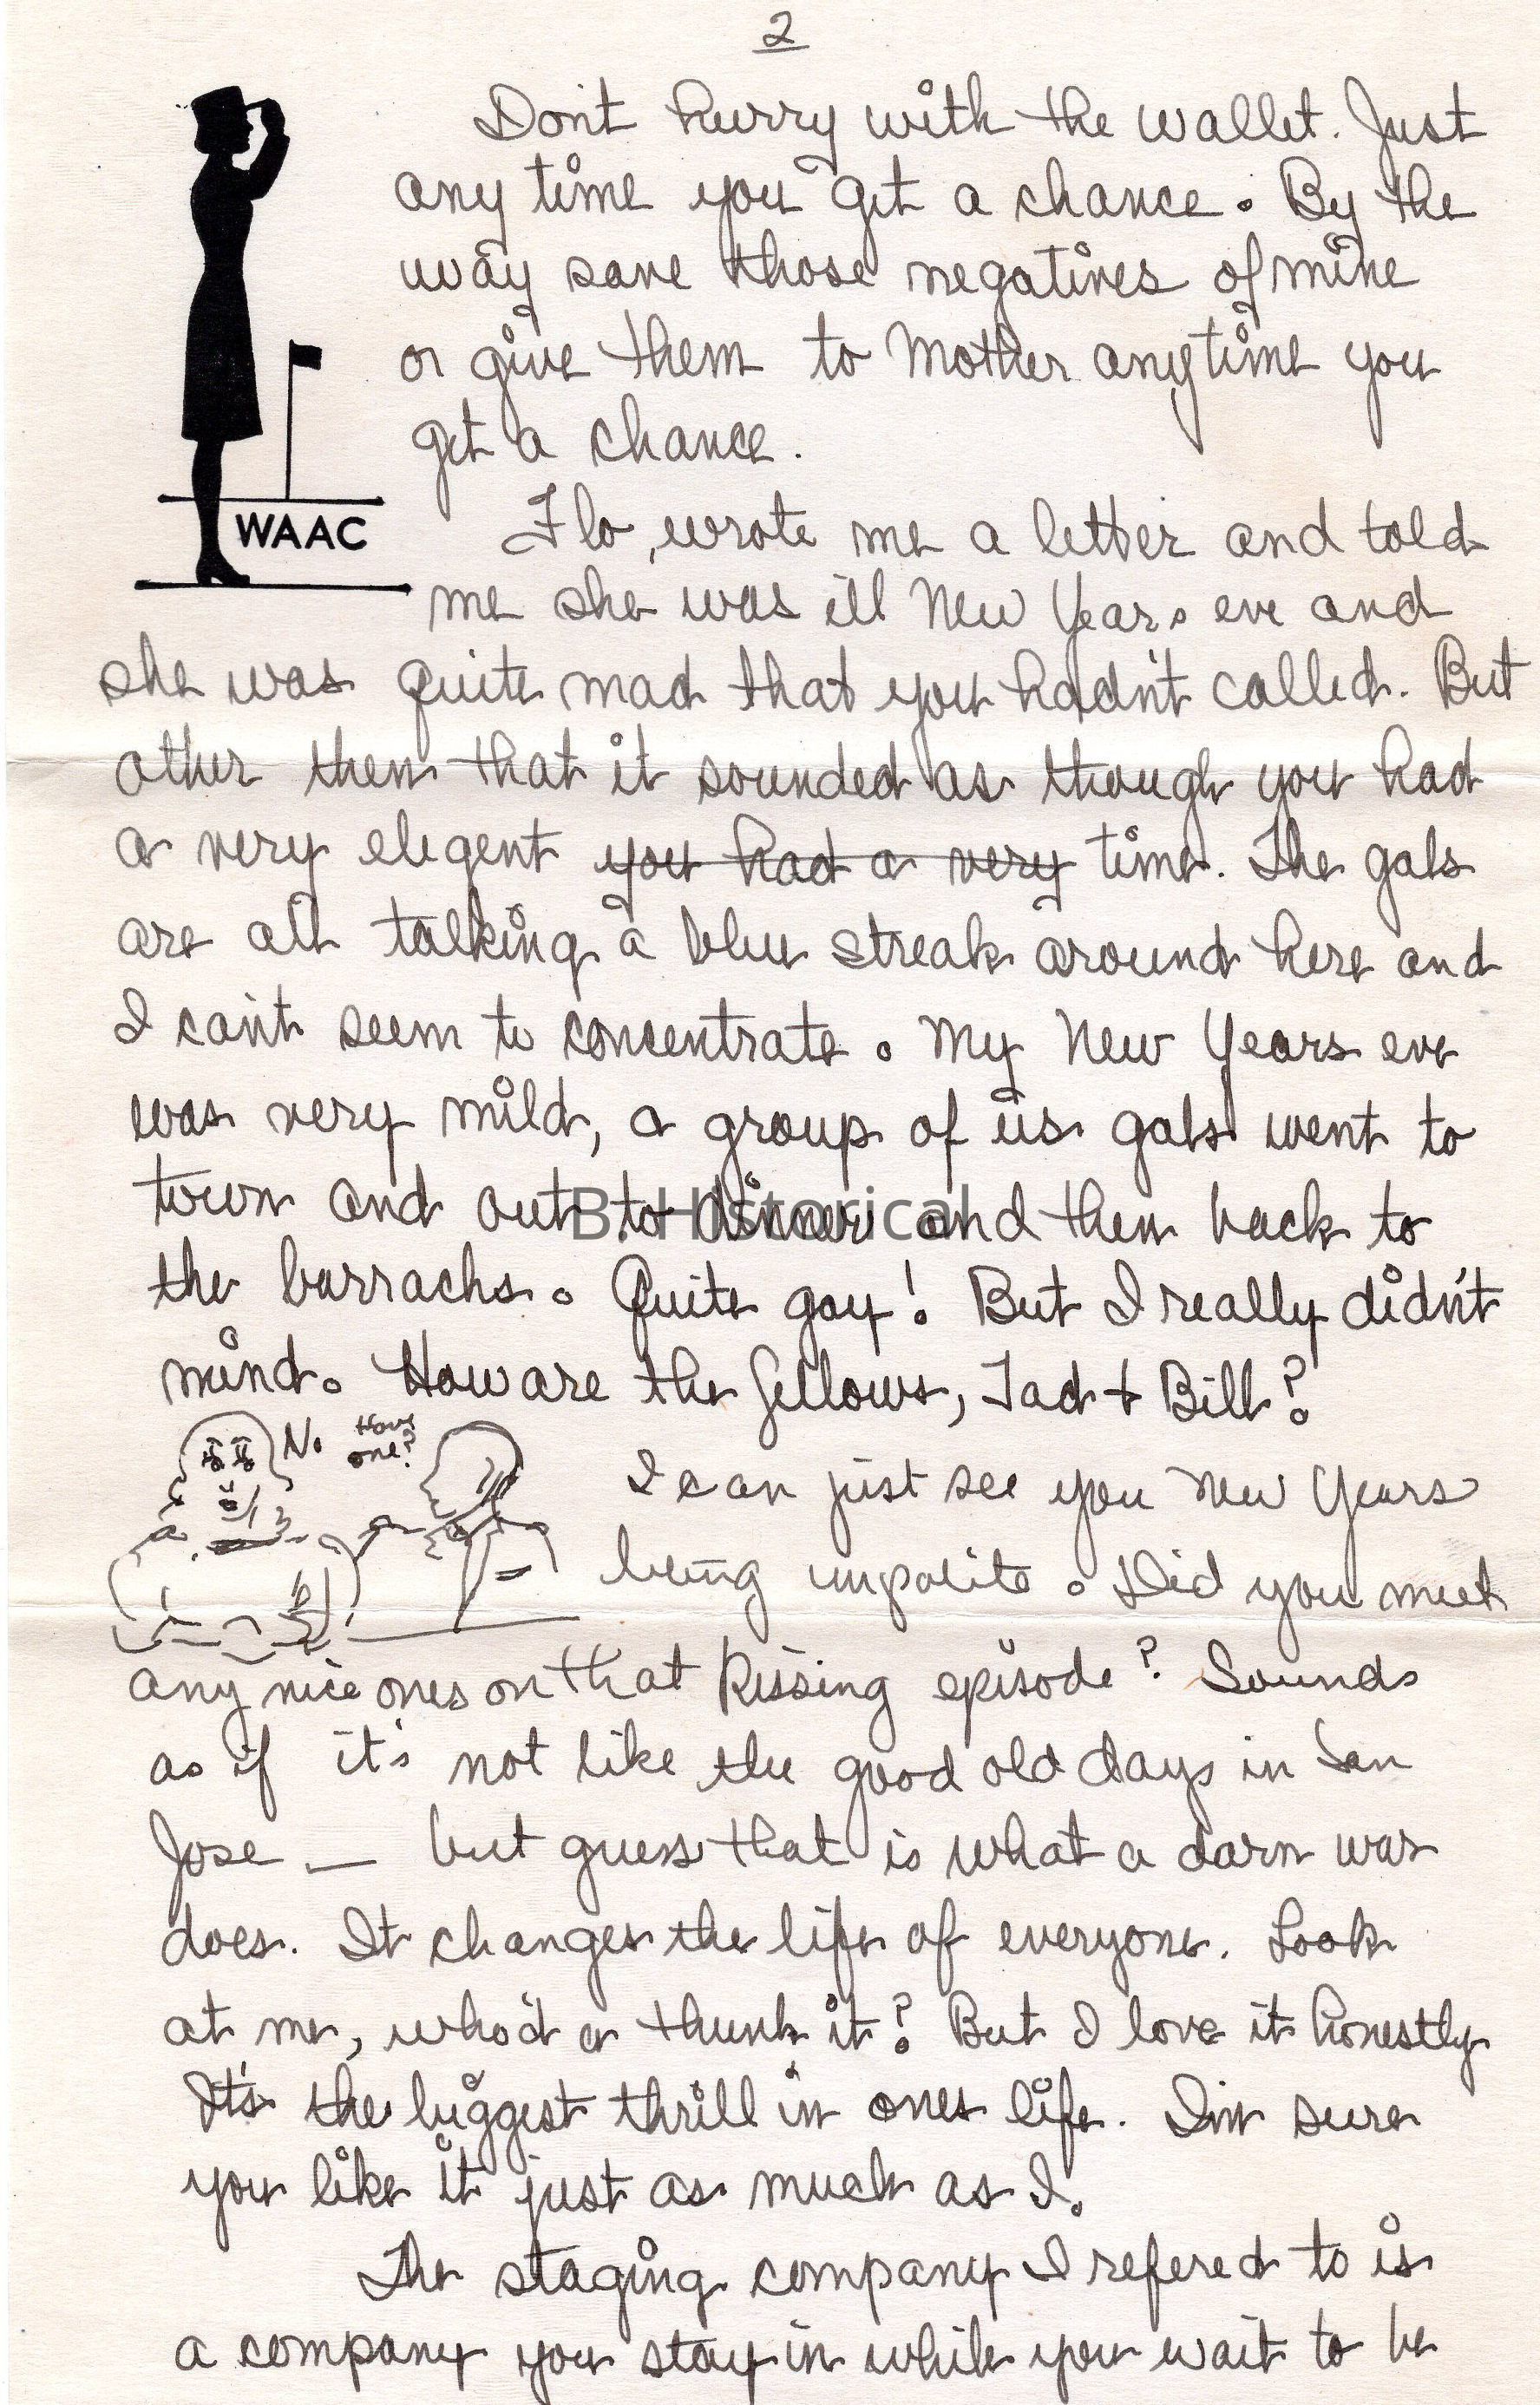 2
Don't hurry with the wallet. Just
any time you get a chance. By the
way save those negatives of mine
or give them to Mother anytime you
get a chance.
WAAC
Flo, wrote me a letter and told
me she was ill New Years eve and
she was quite mad that you hadn't called. But
other then that it sounded as though you had
a very elegent you had a very time. The gals
are all talking a blue streak around here and
I can't seem to concentrate. My New Years eve
was very mild, a group of us gals went to
town and out to dinner and then back to
B. Historical
the barracks. Quite gay! But I really didn't
mind. How are the fellows, Tad + Bill?
No Have
one?
I can just see you New Years
being unpolite. Did you meet
any nice ones on that kissing episode? Sounds
as if it's not like the good old days in San
Jose — but guess that is what a darn war
does. It changes the life of everyone. Look
at me, who'd a thunk it? But I love it honestly
It's the biggest thrill in ones life. I'm sure
you like it just as much as I.
The staging company I refered to is
a company you stay in while you wait to be